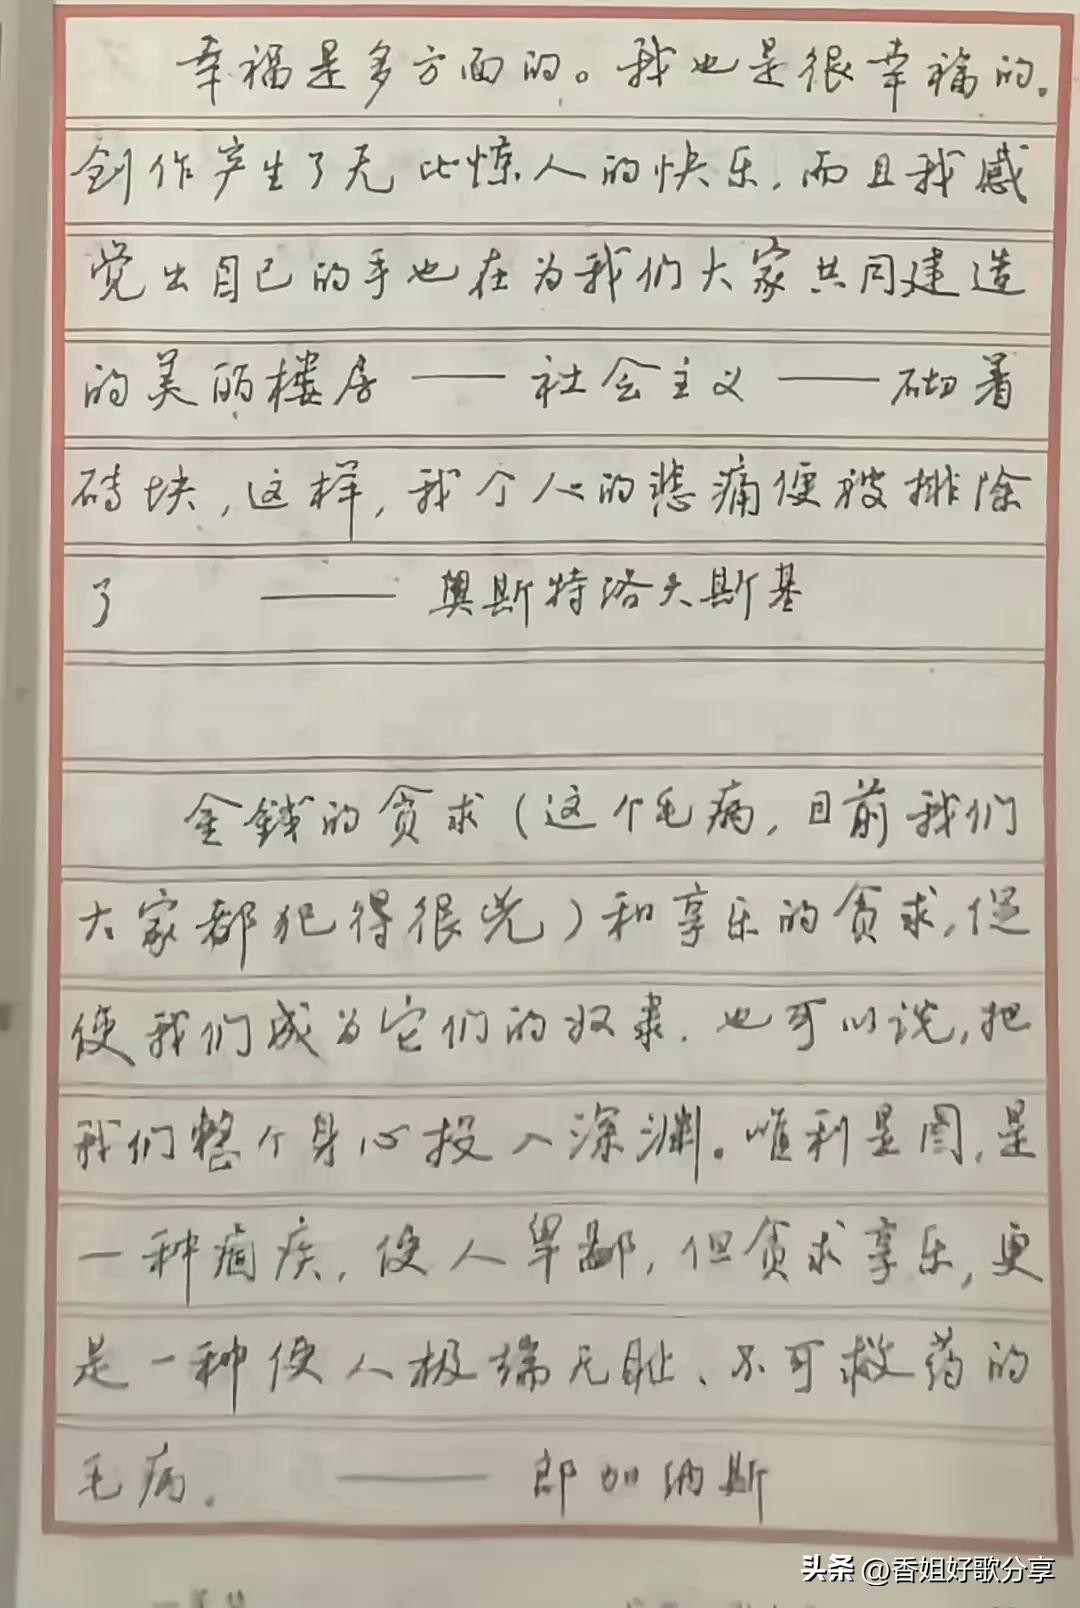 幸福是多方面的。我也是很幸福的。
创作产生了无比惊人的快乐，而且我感
觉出自己的手也在为我们大家共同建造
的美丽楼房——社会主义——砌着
砖块，这样，我个人的悲痛便被排除
了 ——奥斯特洛夫斯基
金錢的贪求（这个毛病，目前我们
大家都犯得很凶）和享乐的贪求，促
使我们成为它们的奴隶．也可以说，把
我们整个身心投入深渊。唯利是图，是
一种痼疾，使人卑鄙，但贪求享乐，更
是一种使人极端无耻、不可救药的
毛病． ——郎加纳斯
头条 @香姐好歌分享